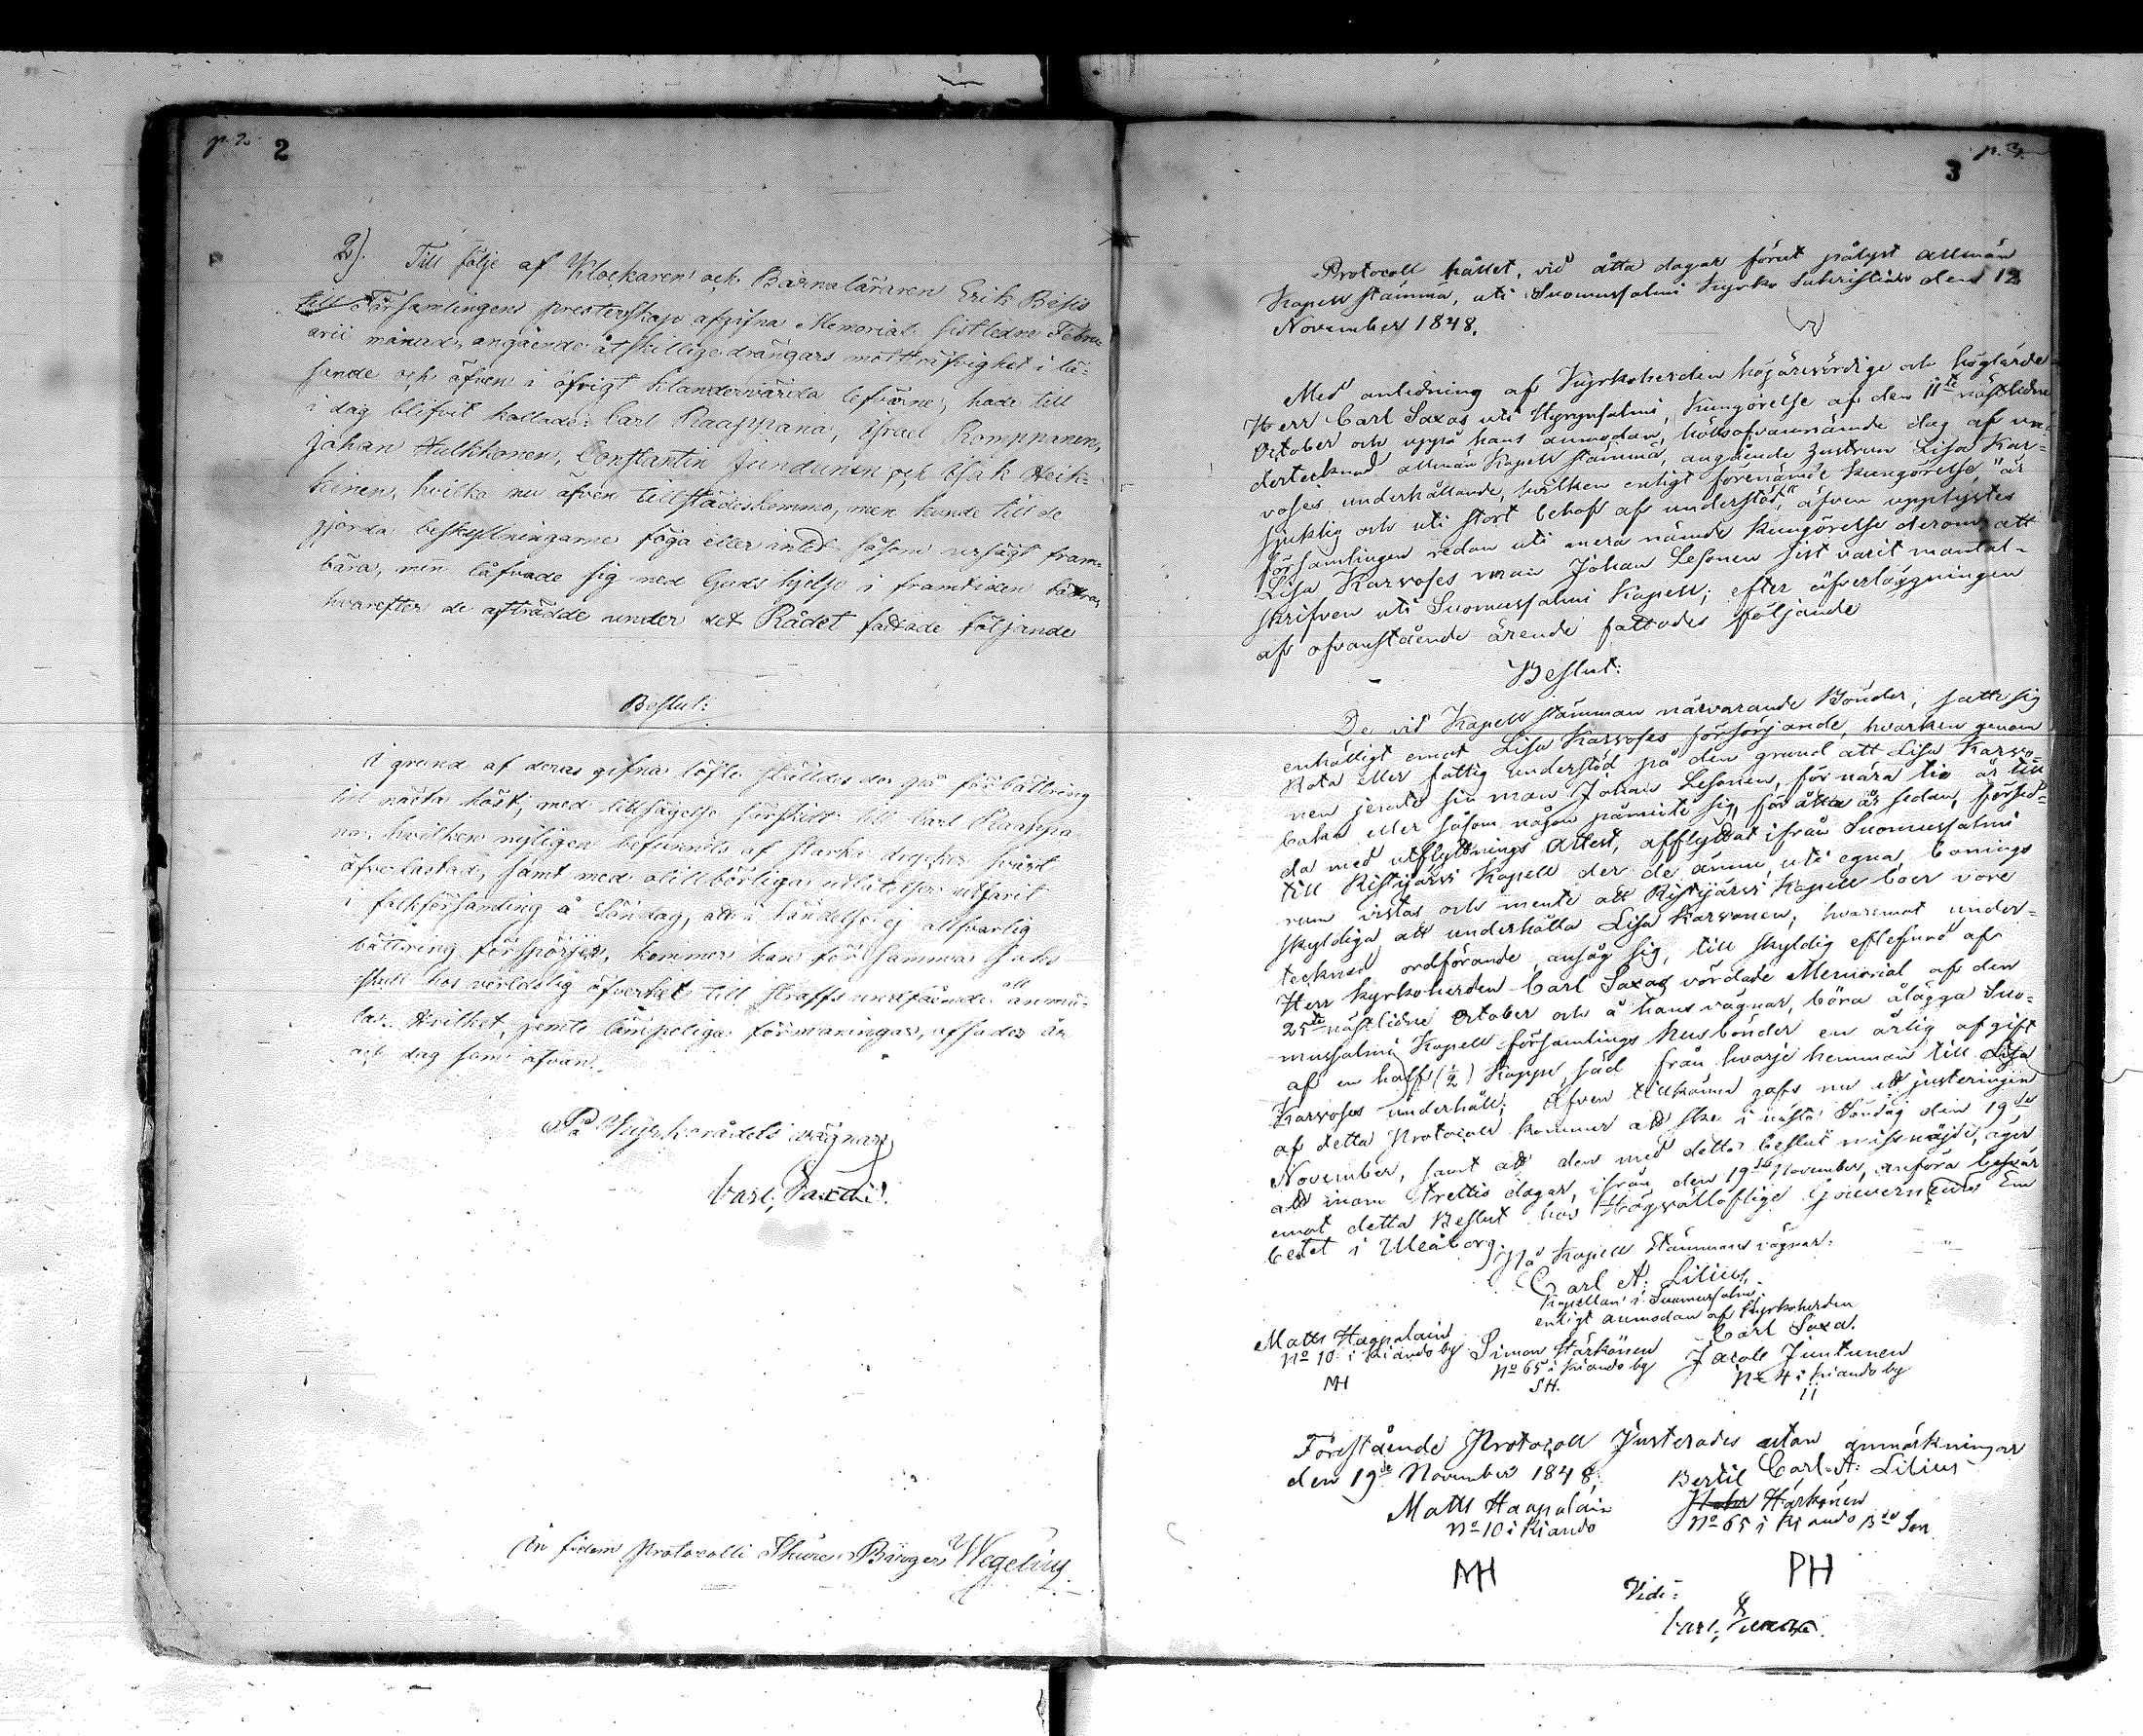 p. 2. 2
2). Till följe af Klockaren och Barnaläraren Erik
till Församlingens presterskap afgifna Memorial sistledne Febru-
arii månad, angående åtskillige drängars motsträfvighet i lä-
sande och äfven i öfrigt klandervärda lefverne, hade till
i dag blifvit kallade: Carl Raappana, Israel Romppanen,
Johan Hulkkonen, Constantin Jundunen och Isak Heik-
kinen, hvilka nu äfven tillstädeskommo, men kunde till de
gjorda beskyllningarne föga eller intet såsom urságt fram-
bära, men låfvade sig med Guds hjelp i framtiden bättra,
hvarefter de afträdde under det Rådet fattade följande
Beslut:
I grund af deras gifna löfte ställdes de på förbättring
till nästa höst, med tillsägelse särskildt till Carl Raappa-
na, hvilken nyligen befunnits af starka drycker svårt
öfverlastad, samt med otillbörliga utlåtelser utfarit
i folkförsamling å Söndag, att i händelse ej allfvarlig
bättring förspörjes, kommer han för samma saks
skull hos verldslig öfverhet till straffs undfående att anmä-
las. Hvilket, jemte lämpeliga förmaningar, afsades år
och dag som ofvan.
På Kyrkorådets vägnar
Carl Saxa.
In fidem Protocolli Thure Birger Wegelius
p. 3.
3
Protocoll hållet, vid åtta dagar förut pålyst allmän
Kapell stämma, uti Suomussalmi Kyrko Sakristian den 12
November 1848.
Med anledning af Kyrkoherden högärevördige och höglärde
Herr Carl Saxas uti Hyrynsalmi, Kungörelse af den 11te nästledne
October och uppå hans anmodan, hölls ofvannämnde dag af un-
dertecknad allmän Kapell stämma, angående Enkan Lisa Kar-
voses underhållande, hvilken enligt förenämde Kungörelse, "är
sjuklig och uti stort behof af understöd", äfven upplystes
församlingen redan uti mera nämde Kungörelse derom att
Lisa Karvoses man Johan Lesonen sist varit mantal-
skrifven uti Suomussalmi Kapell; efter öfverläggningen
af ofvanstående ärende fattades följande
Beslut:
De vid Kapell stämman närvarande Bönder, satte sig
enhälligt emot Lisa Karvoses försörjande, hvarken genom
Rota eller fattig understöd på den grund att Lisa Karvo-
nen jemte sin man Johan Lesonen, för nära tio år till-
baka eller såsom någon påminte sig, för åtta år sedan, försed-
da med utflyttnings Attest, afflyttat ifrån Suomussalmi
till Ristijärvi Kapell der de ännu, uti egna bonings
rum vistas och mente att Ristijärvi Kapell boer vore
skyldiga att underhålla Lisa Karvonen; hvaremot under-
tecknad ordförande ansåg sig, till skyldig efterlefnad af
Herr Kyrkoherden Carl Saxas vördade Memorial af den
25te nästlidne October och å hans vägnar, böra ålägga Suo-
mussalmi Kapell församlings Husbönder en årlig afgift
af en half (1/2) Kappe, säd från hvarje hemman till Lisa
Karvoses underhåll; Äfven tillkänna gafs nu att justeringen
af detta Protocoll kommer att ske i nästa Söndag den 19de
November, samt att den med detta beslut missnöjde, äger
att inom trettio dagar, ifrån den 19de November, anföra besvär
emot detta Beslut hos Högvällofliga Gouverneurs Em
betet i Uleåborg.
På Kapell Stämmans vägnar:
Carl A: Lilius,
Kapellan i Suomussalmi,
enligt anmodan af Kyrkoherden
Carl Saxa.
Matts Haapalain No 10 i Kiando by MH
Simon Härkönen No 65 i Kiando by SH.
Jacob Juntunen No 4 i Kiando by II
Förestående Protocoll Justerades utan anmärkningar
den 19de November 1848.
Carl A: Lilius
Matts Haapalain No 10 i Kiando
Bertil Härkönen No 65 i Kiando
MH PH
Vidi:
Carl Saxa.